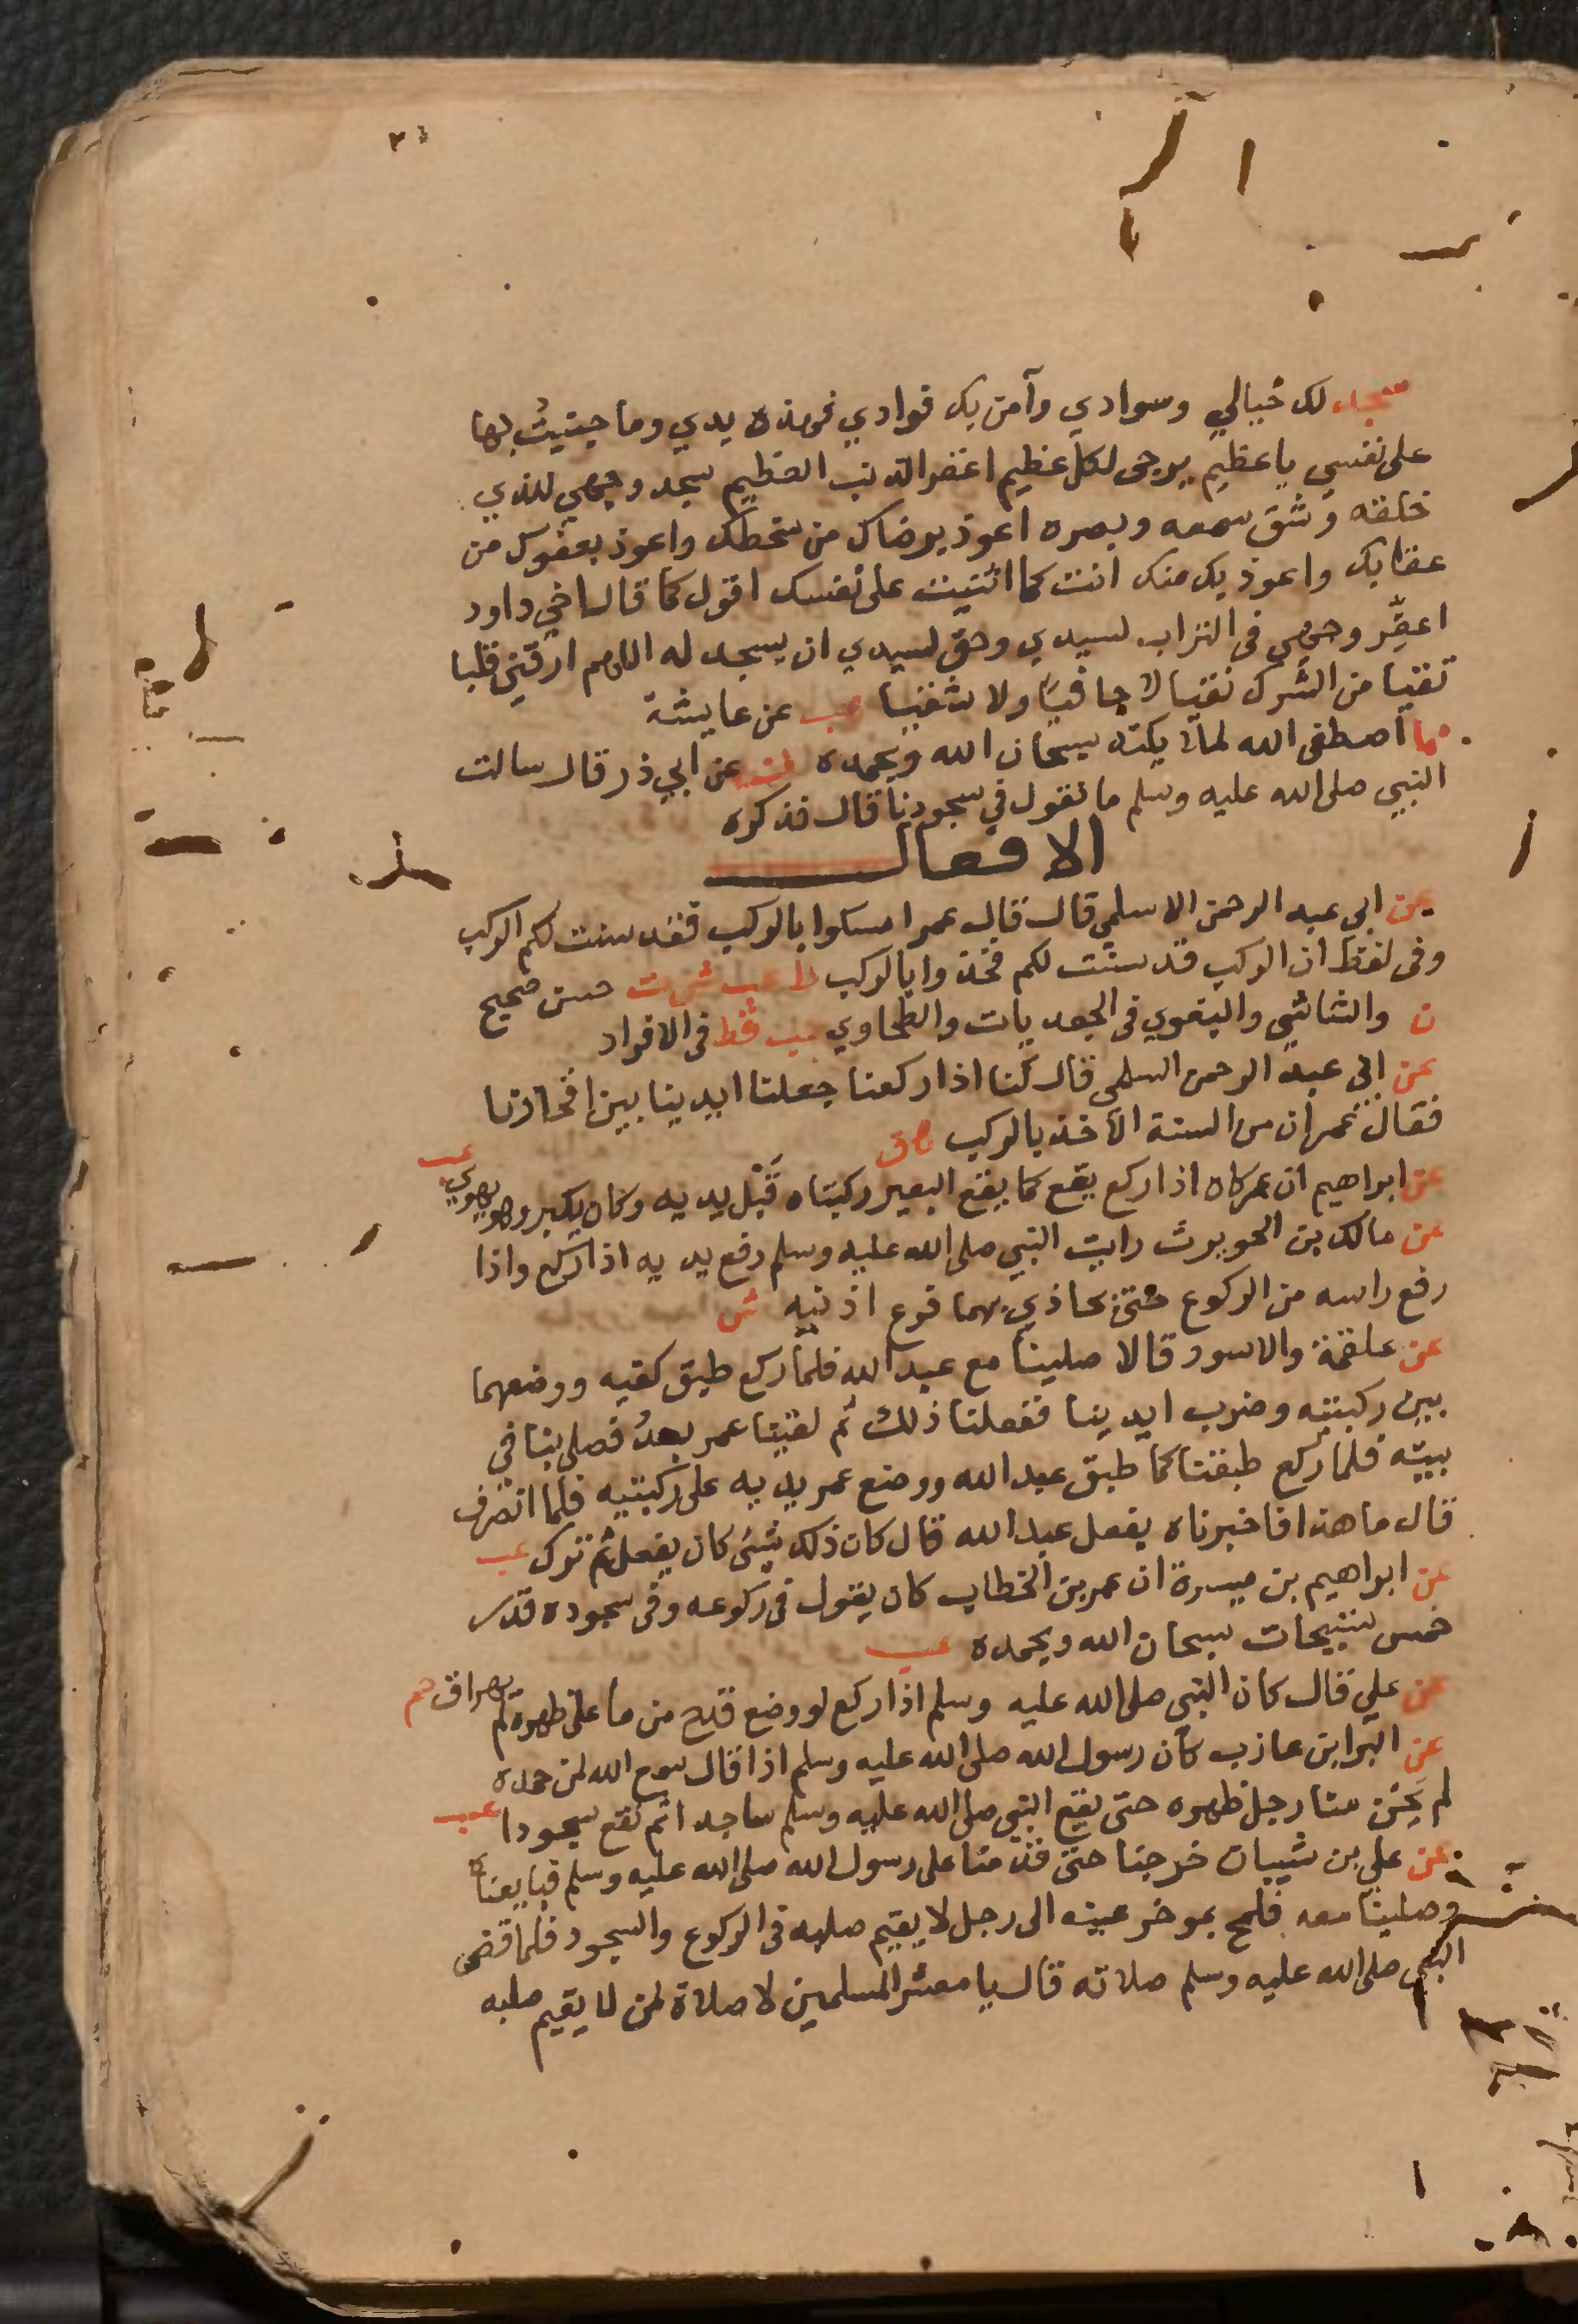 سجد لك خيالي وسوادي وآمن بك فوادي فهذه يدي وما جنيتُ بها
على نفسي يا عظيم يرجى لكل عظيم اغفر الذنب العظيم سجد وجهي للذي
خلقه وشق سمعه وبصره اعوذ برضاك من سخطك واعوذ بعفوك من
عقابك واعوذ بك منك انت كما اثنيت على نفسك اقول كما قال اخي داود
اعفِّر وجهي في التراب لسيدي وحق لسيدي ان يسجد له اللهم ارزقني قلبا
تقيا من الشرك نقيا لا جافيا ولا شقيا هب عن عايشة
ما اصطفى الله لملائكته سبحان الله وبحمده عن ابي ذر قال سالت
النبي صلى الله عليه وسلم ما نقول في سجودنا قال فذكره
الافعال
عن ابي عبد الرحمن الاسلمي قال قال عمر امسكوا بالركب فقد سنت لكم الركب
وفي لفظ ان الركب قد سنت لكم فخذوا بالركب ط عب ش ت حسن صحيح
ن والشاشي والبغوي في الجعديات والطحاوي حب قط في الافراد
عن ابي عبد الرحمن السلمي قال كنا اذا ركعنا جعلنا ايدينا بين افخاذنا
فقال عمر ان من السنة الاخذ بالركب هق
عن ابراهيم ان عمر كان اذا ركع يقع كما يقع البعير ركبتاه قَبْل يديه وكان يكبر وهو يهوي عب
عن مالك بن الحويرث رايت النبي صلى الله عليه وسلم رفع يديه اذا ركع واذا
رفع راسه من الركوع حتى يحاذي بهما فوع اذنيه ش
عن علقمة والاسود قالا صلينا مع عبد الله فلما ركع طبق كفيه ووضعهما
بين ركبتيه وضرب ايدينا ففعلنا ذلك ثم لقينا عمر بعدُ فصلى بنا في
بيته فلما ركع طبقنا كما طبق عبد الله ووضع عمر يديه على ركبتيه فلما انصرف
قال ما هذا فاخبرناه بفعل عبد الله قال كان ذلك شئ كان يفعل ثم ترك عب
عن ابراهيم بن ميسرة ان عمر بن الخطاب كان يقول في ركوعه وفي سجوده قدر
خمس تسبيحات سبحان الله وبحمده عب
عن علي قال كان النبي صلى الله عليه وسلم اذا ركع لو وضع قدح من ما على ظهره لم يهراق حم
عن البرا بن عازب كان رسول الله صلى الله عليه وسلم اذا قال سمع الله لمن حمده
لم يَحْنِ منا رجل ظهره حتى يقع النبي صلى الله عليه وسلم ساجدا ثم نقع سجودا عب
عن علي بن شيبان خرجنا حتى قدمنا على رسول الله صلى الله عليه وسلم فبايعناه
وصلينا معه فلمح بموخر عينه الى رجل لا يقيم صلبه في الركوع والسجود فلما قضى
النبي صلى الله عليه وسلم صلاته قال يا معشر المسلمين لا صلاة لمن لا يقيم صلبه